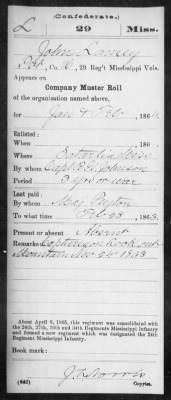 (Confederate.)
L 29 Miss.
John Lamey
Pvt, Co. K, 29 Reg't Mississippi Vols.
Appears on
Company Muster Roll
of the organization named above,
for Jan & Feb, 1864.
Enlisted:
When , 186 .
Where
By whom Capt Johnson
Period 3 yrs or war
Last paid:
By whom Maj
To what time Feb 28, 1863.
Present or absent Absent
Remarks: Captured on Lookout
Mountain Nov 24th 1863
About April 9, 1865, this regiment was consolidated with
the 24th, 27th, 30th and 34th Regiments Mississippi Infantry
and formed a new regiment which was designated the 24th
Regiment Mississippi Infantry.
Book mark:
(642) Copyist.